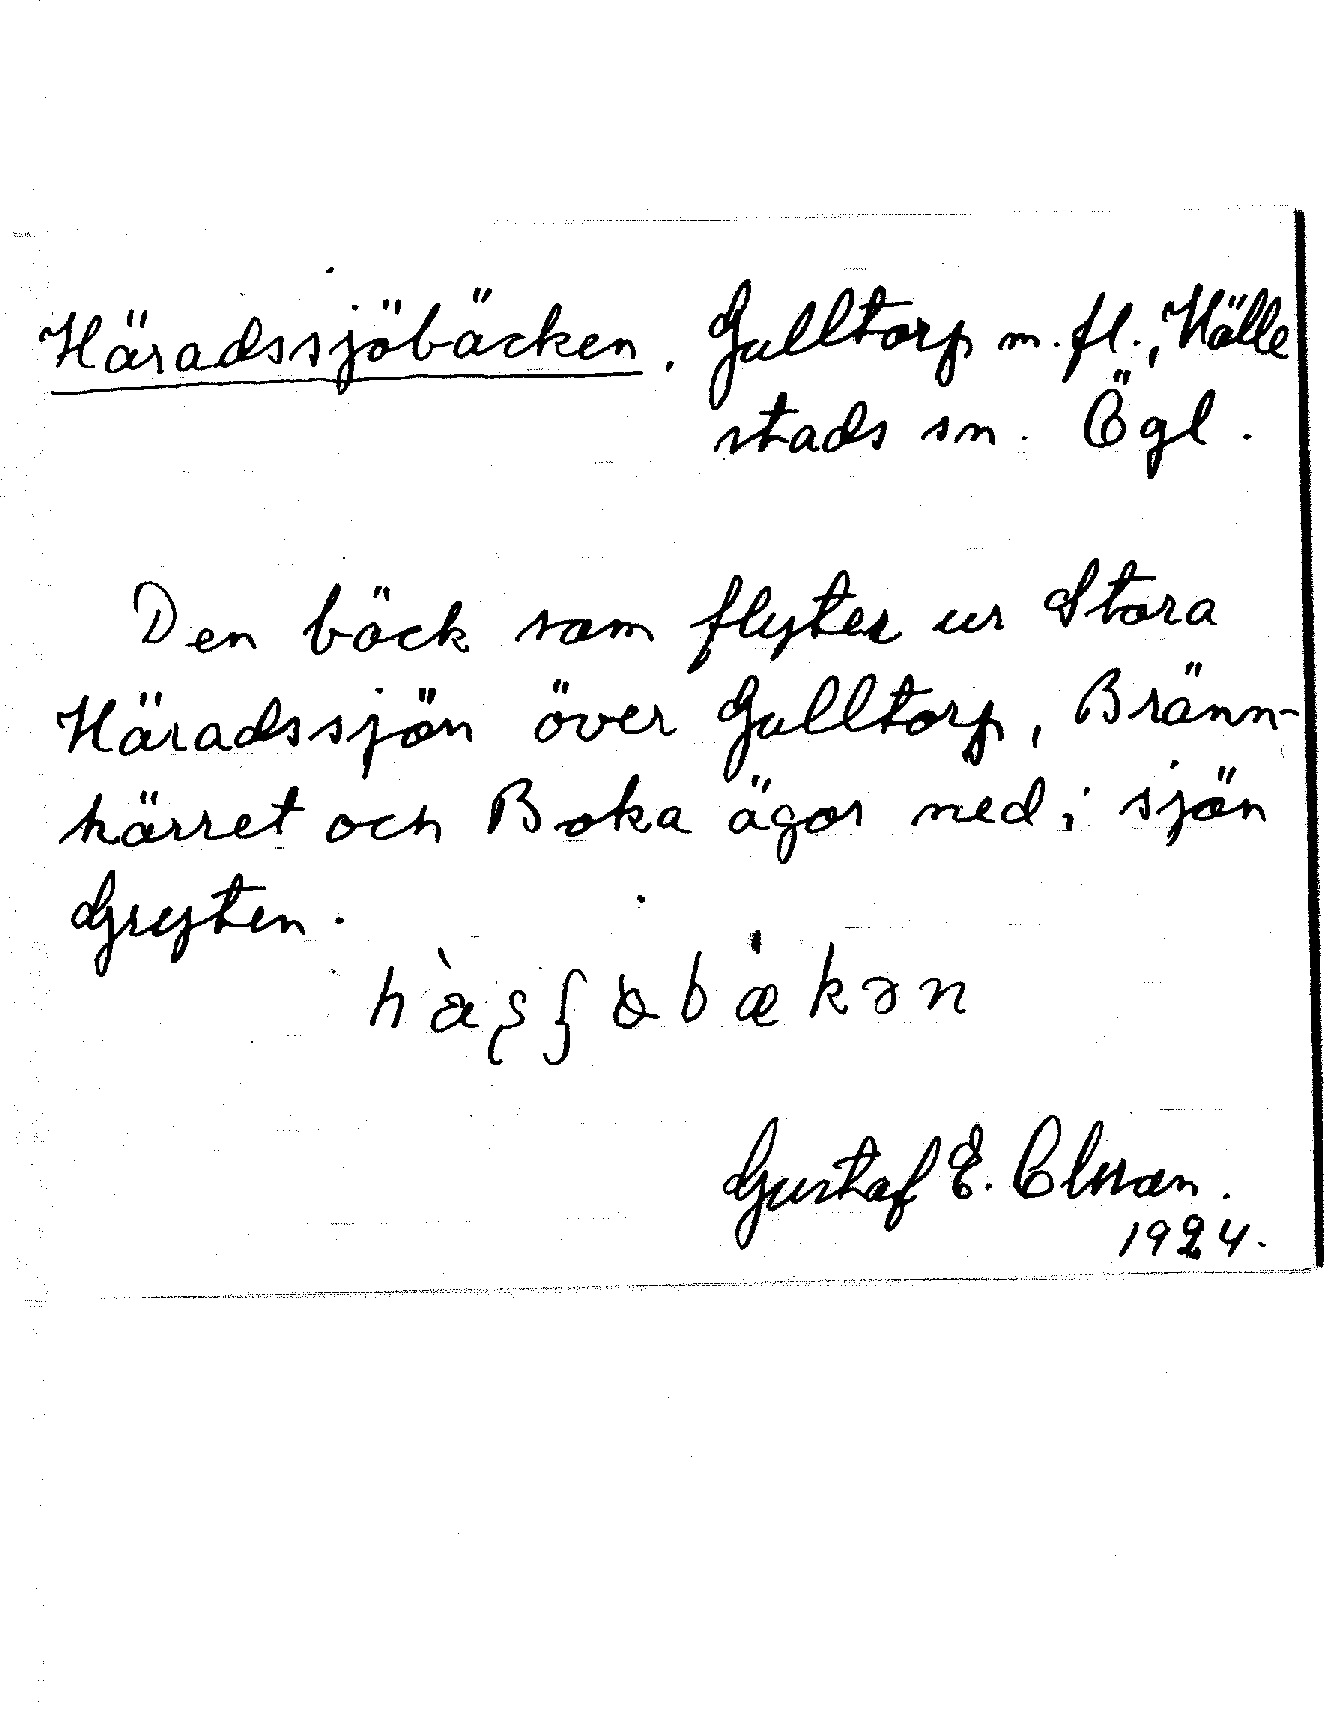 Häradssjöbäcken. Gulltorp m.fl., Hälle
stads sn. Ögl.
Den bäck som flyter ur Stora
Häradssjön över Gulltorp, Bränn-
kärret och Boka ägor ned i sjön
Gryten.
Gustaf E. Olsson.
1924.